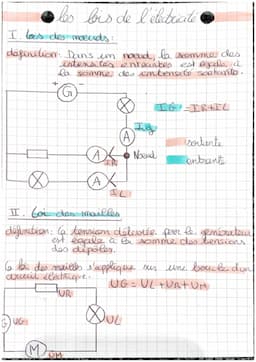 les lois de l'électricité
I. Lois des nœuds:
définition: Dans un nœud, la somme des
intensités entrantes est égale à
la somme des intensités sortante.
G
IG = IR + IL
A
IG
sortante
A
Nœud
entrante
IR
A
IL
II. Loi des mailles
définition: la tension délivrée par le générateur
est égale à la somme des tensions
des dipôles.
la loi des mailles s'applique sur une boucle d'un
circuit électrique.
UG = UL + UR + UM
UR
G
UG
UL
M
UM